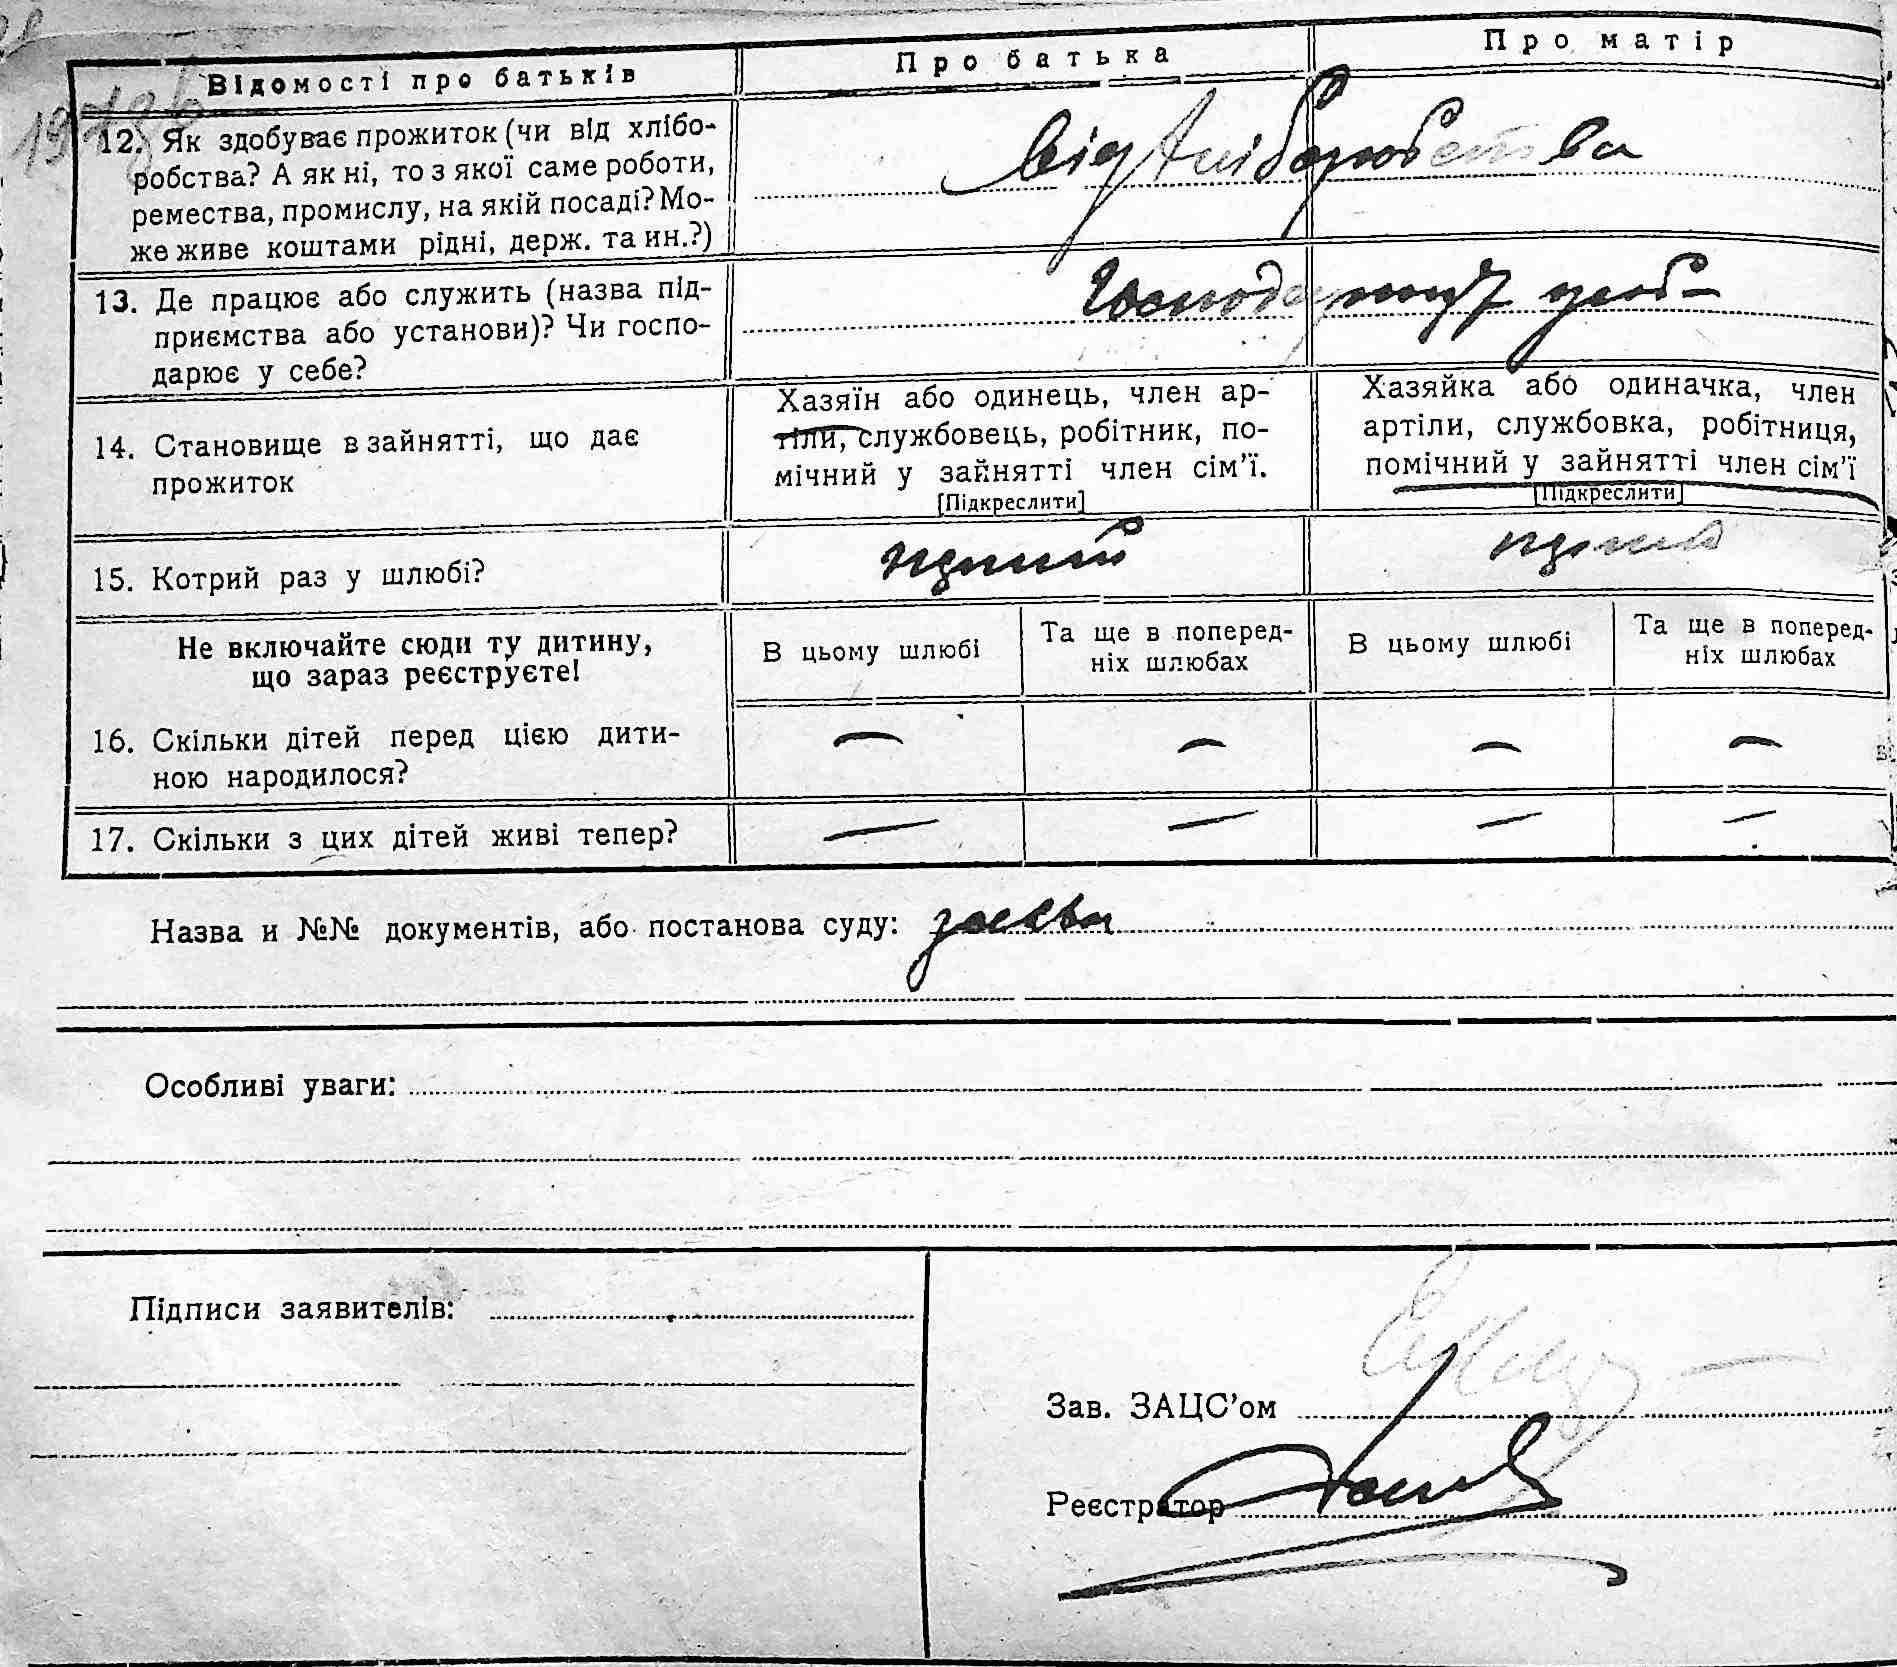 Відомості про батьків
Про батька
Про матір
12. Як здобуває прожиток (чи від хлібо-
робства? А як ні, то з якої саме роботи,
ремества, промислу, на якій посаді? Мо-
же живе коштами рідні, держ. та ин.?)
від хліборобства
13. Де працює або служить (назва під-
приємства або установи)? Чи госпо-
дарює у себе?
14. Становище в зайнятті, що дає
прожиток
Хазяїн або одинець, член ар-
тіли, службовець, робітник, по-
мічний у зайнятті член сім'ї.
[Підкреслити]
Хазяйка або одиначка, член
артіли, службовка, робітниця,
помічний у зайнятті член сім'ї
[Підкреслити]
15. Котрий раз у шлюбі?
перший
перший
Не включайте сюди ту дитину,
що зараз реєструєте!
В цьому шлюбі
Та ще в поперед-
ніх шлюбах
В цьому шлюбі
Та ще в поперед-
ніх шлюбах
16. Скільки дітей перед цією дити-
ною народилося?
— — — —
17. Скільки з цих дітей живі тепер?
— — — —
Назва и №№ документів, або постанова суду: заява
Особливі уваги:
Підписи заявителів:
Зав. ЗАЦС'ом
Реєстратор